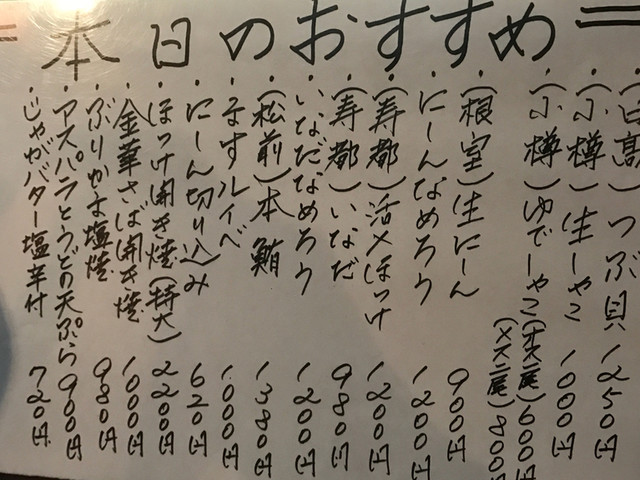 本日のおすすめ
(日高)つぶ貝 1250円
(小樽)生しゃこ 1000円
(小樽)ゆでしゃこ(オス二尾)600円
(メス二尾)800円
(根室)生にしん 900円
にしんなめろう 1200円
(寿都)活〆ほっけ 1200円
(寿都)いなだ 980円
いなだなめろう 1200円
(松前)本鮪 1380円
ますルイベ 1000円
にしん切り込み 620円
ほっけ開き焼(特大) 2200円
金華さば開き焼 1000円
ぶりかま塩焼 980円
アスパラとうどの天ぷら 900円
じゃがバター塩辛付 720円